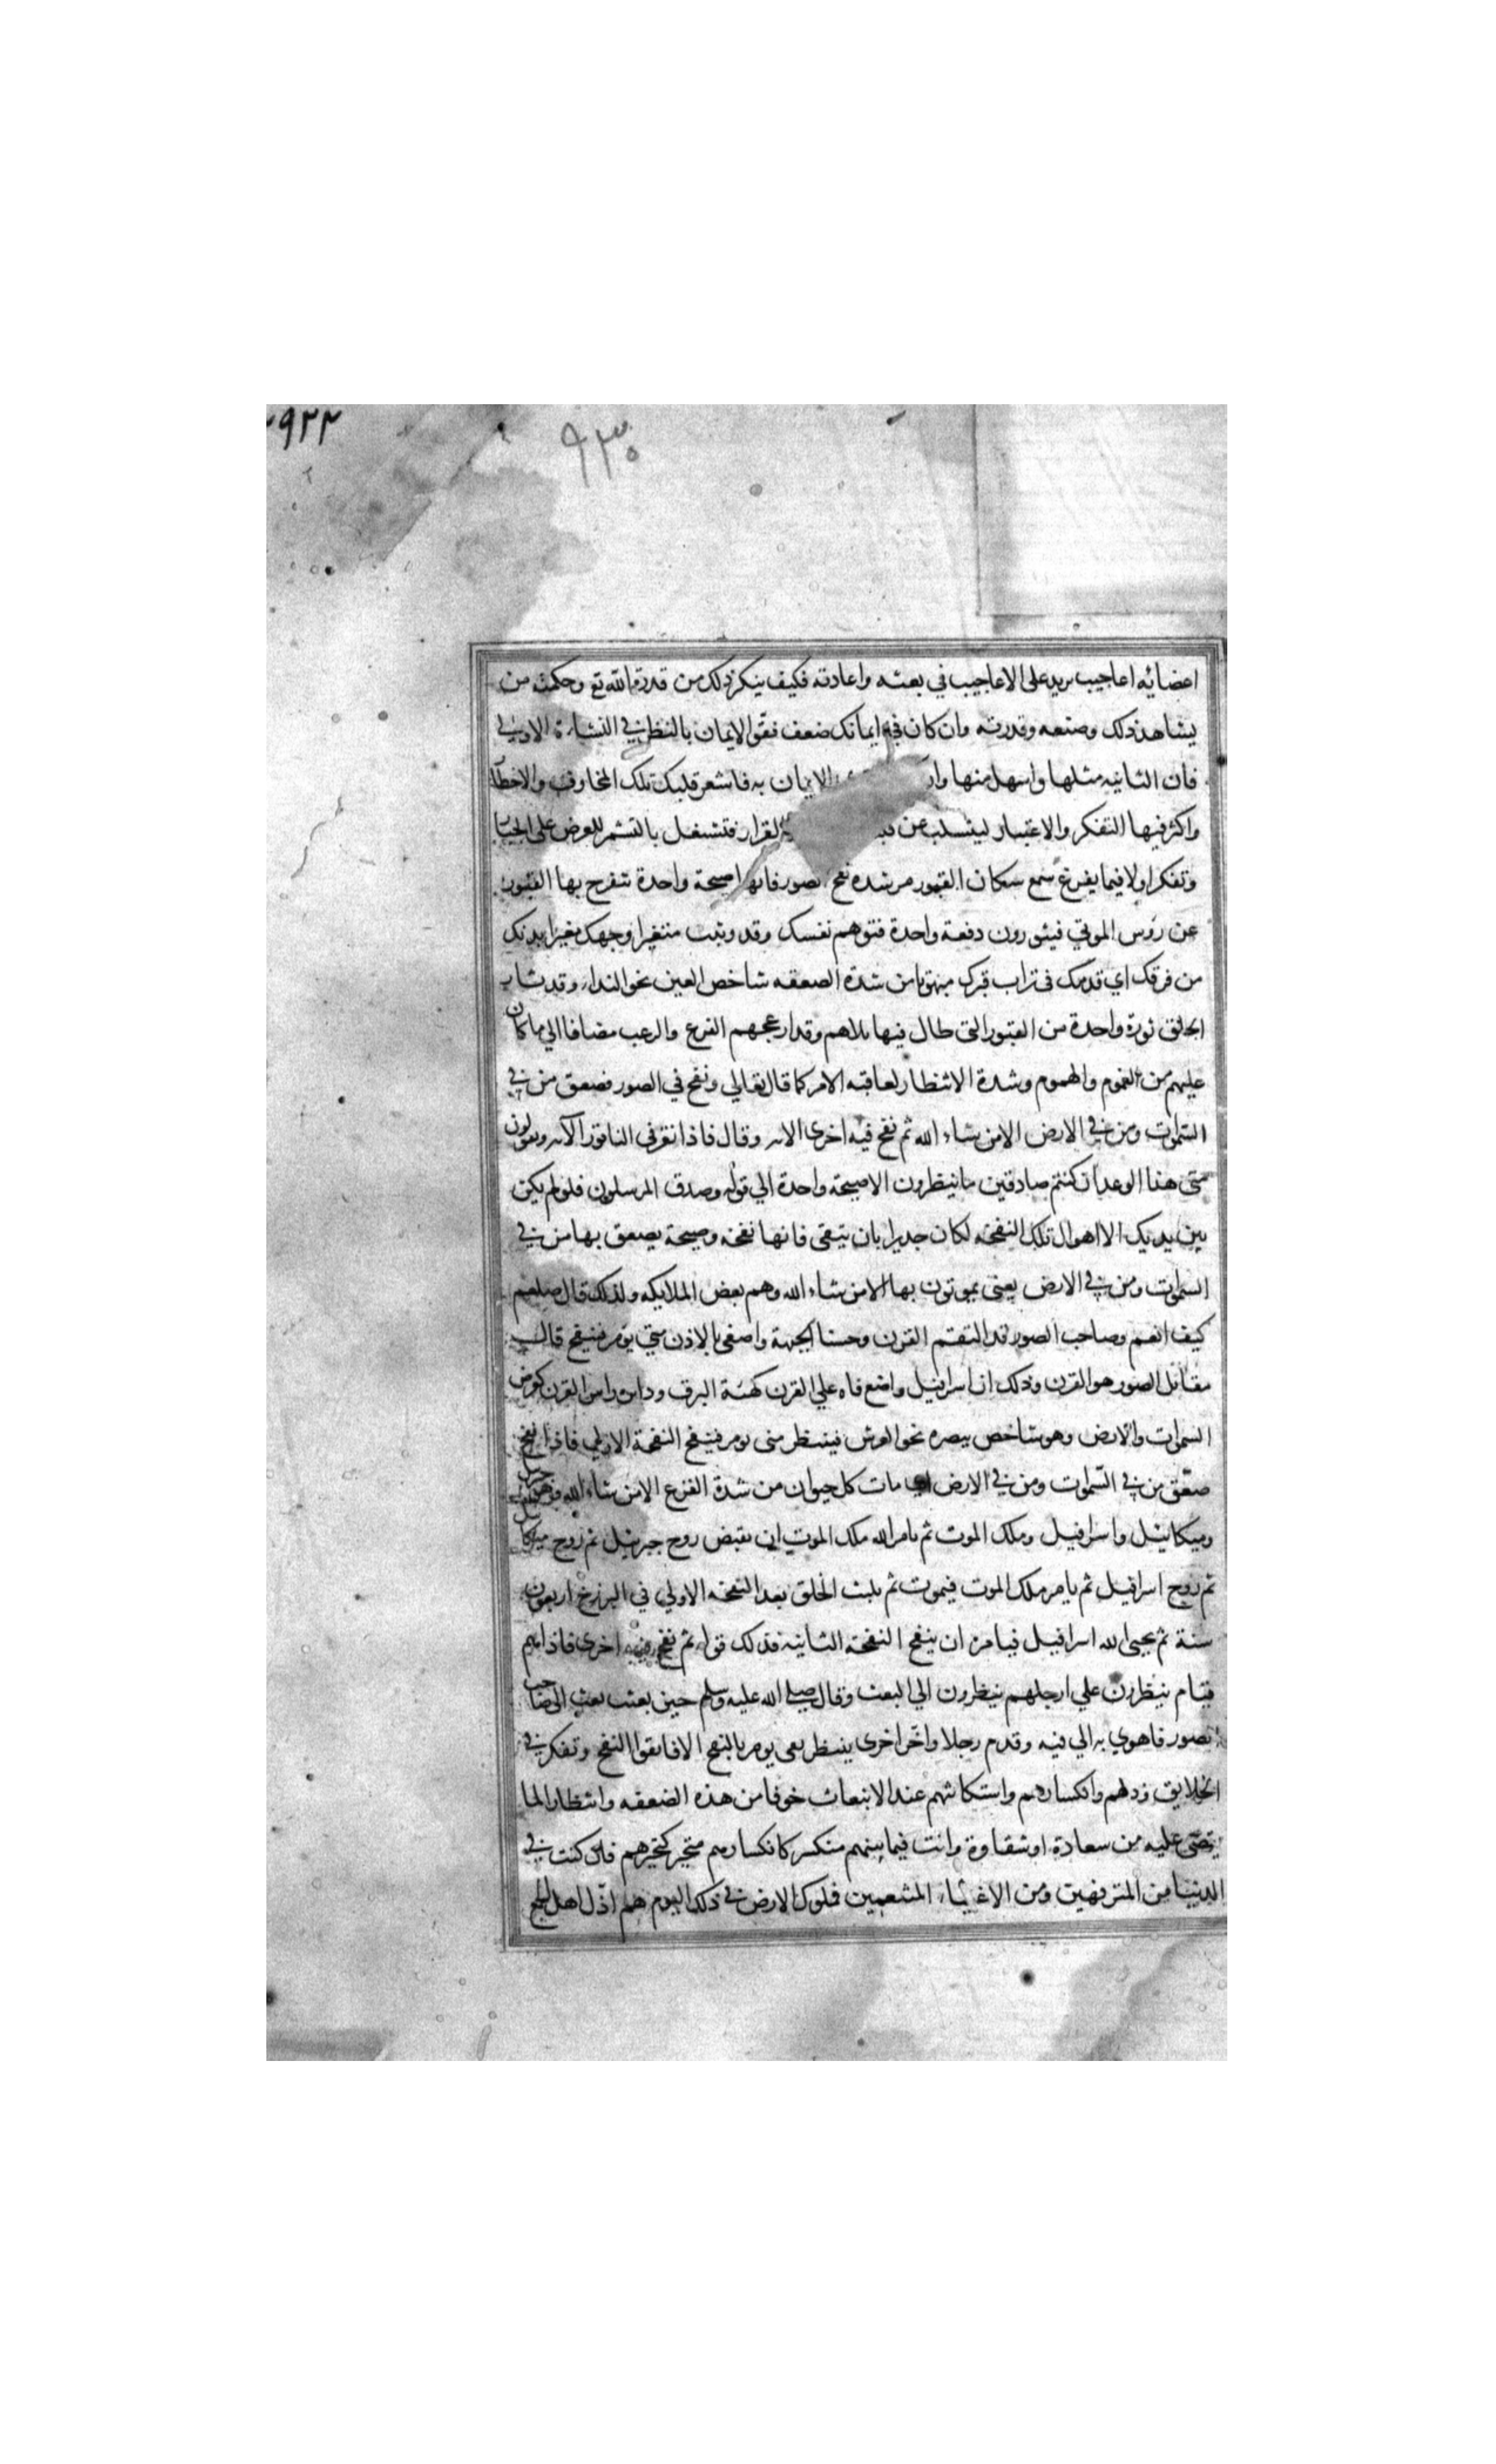 ٩٢٢
٩٣٠
اعضائه اعاجيب يزيد على الاعاجيب في بعثه واعادته فكيف ينكر ذلك من قدرة الله تع وحكمته من
يشاهد ذلك وصنعه وقدرته وان كان في ايمانك ضعف فقو الايمان بالنظر في النشاءة الاولى
فان الثانيه مثلها واسهل منها الايمان به فاشعر قلبك تلك المخاوف والاخطار
واكثر فيها التفكر والاعتبار ليتسلب عن القرار فتشتغل بالتشمر للعرض على الجبار
وتفكر اولا فيما يفرع سمع سكان القبور من شدة نفخ الصور فانها صيحة واحدة تنفرج بها القبور
عن رؤس الموتي فيثورون دفعة واحدة فتوهم نفسك وقد وثبت متغيرا وجهك مغبرا بدنك
من فرقك اي قدمك في تراب قبرك مبهوتا من شدة الصعقه شاخص العين نحو النداء وقد ثار
الخلق ثورة واحدة من القبور التي طال فيها بلاهم وقد ازعجهم الفزع والرعب مضافا الي ما كان
عليهم من الغموم والهموم وشدة الانتظار لعاقبه الامر كما قال تعالي ونفخ في الصور فصعق من في
السموات ومن في الارض الا من شاء الله ثم نفخ فيه اخرى الايه وقال فاذا نقر في الناقور الآيه ويقولون
متى هذا الوعد ان كنتم صادقين ما ينظرون الا صيحة واحدة الي قوله وصدق المرسلون فلو لم يكن
بين يديك الا اهوال تلك النفخه لكان جديرا بان يتقى فانها نفخه وصيحة يصعق بها من في
السموات ومن في الارض يعنى يموتون بها الا من شاء الله وهم بعض الملايكه ولذلك قال صلعم
كيف انعم وصاحب الصور قد التقم القرن وحنا الجبهة واصغى بالاذن متي يؤمر فينفخ قال
مقاتل الصور هو القرن وذلك ان اسرافيل واضع فاه علي القرن كهئة البوق ودائره راس القرن كعرض
السموات والارض وهو شاخص ببصره نحو العرش فينتظر متى يومر فينفخ النفخة الاولي فاذا نفخ
صعق من في السموات ومن في الارض اي مات كل حيوان من شدة الفزع الا من شاء الله وهو جبرئيل
وميكائيل واسرافيل وملك الموت ثم يامر الله ملك الموت ان يقبض روح جبرئيل ثم روح ميكائيل
ثم روح اسرافيل ثم يامر ملك الموت فيموت ثم يلبث الخلق بعد النفخه الاولي في البرزخ اربعون
سنة ثم يحيى الله اسرافيل فيامره ان ينفخ النفخة الثانية فذلك قوله ثم نفخ فيه اخرى فاذا هم
قيام ينظرون علي ارجلهم ينظرون الي البعث وقال صلي الله عليه وسلم حين بعث بعث الى صاحب
الصور فاهوي به الي فيه وقدم رجلا واخر اخرى ينتظر متى يومر بالنفخ الا فاتقوا النفخ وتفكر في
الخلايق وذلهم وانكسارهم واستكانتهم عند الانبعاث خوفا من هذه الصعقه وانتظارا لما
يقضى عليه من سعادة او شقاوة وانت فيما بينهم منكسر كانكسارهم متحير كتحيرهم فان كنت في
الدنيا من المترفهين ومن الاغنياء المتنعمين فملوك الارض في ذلك اليوم هم اذل اهل الجمع